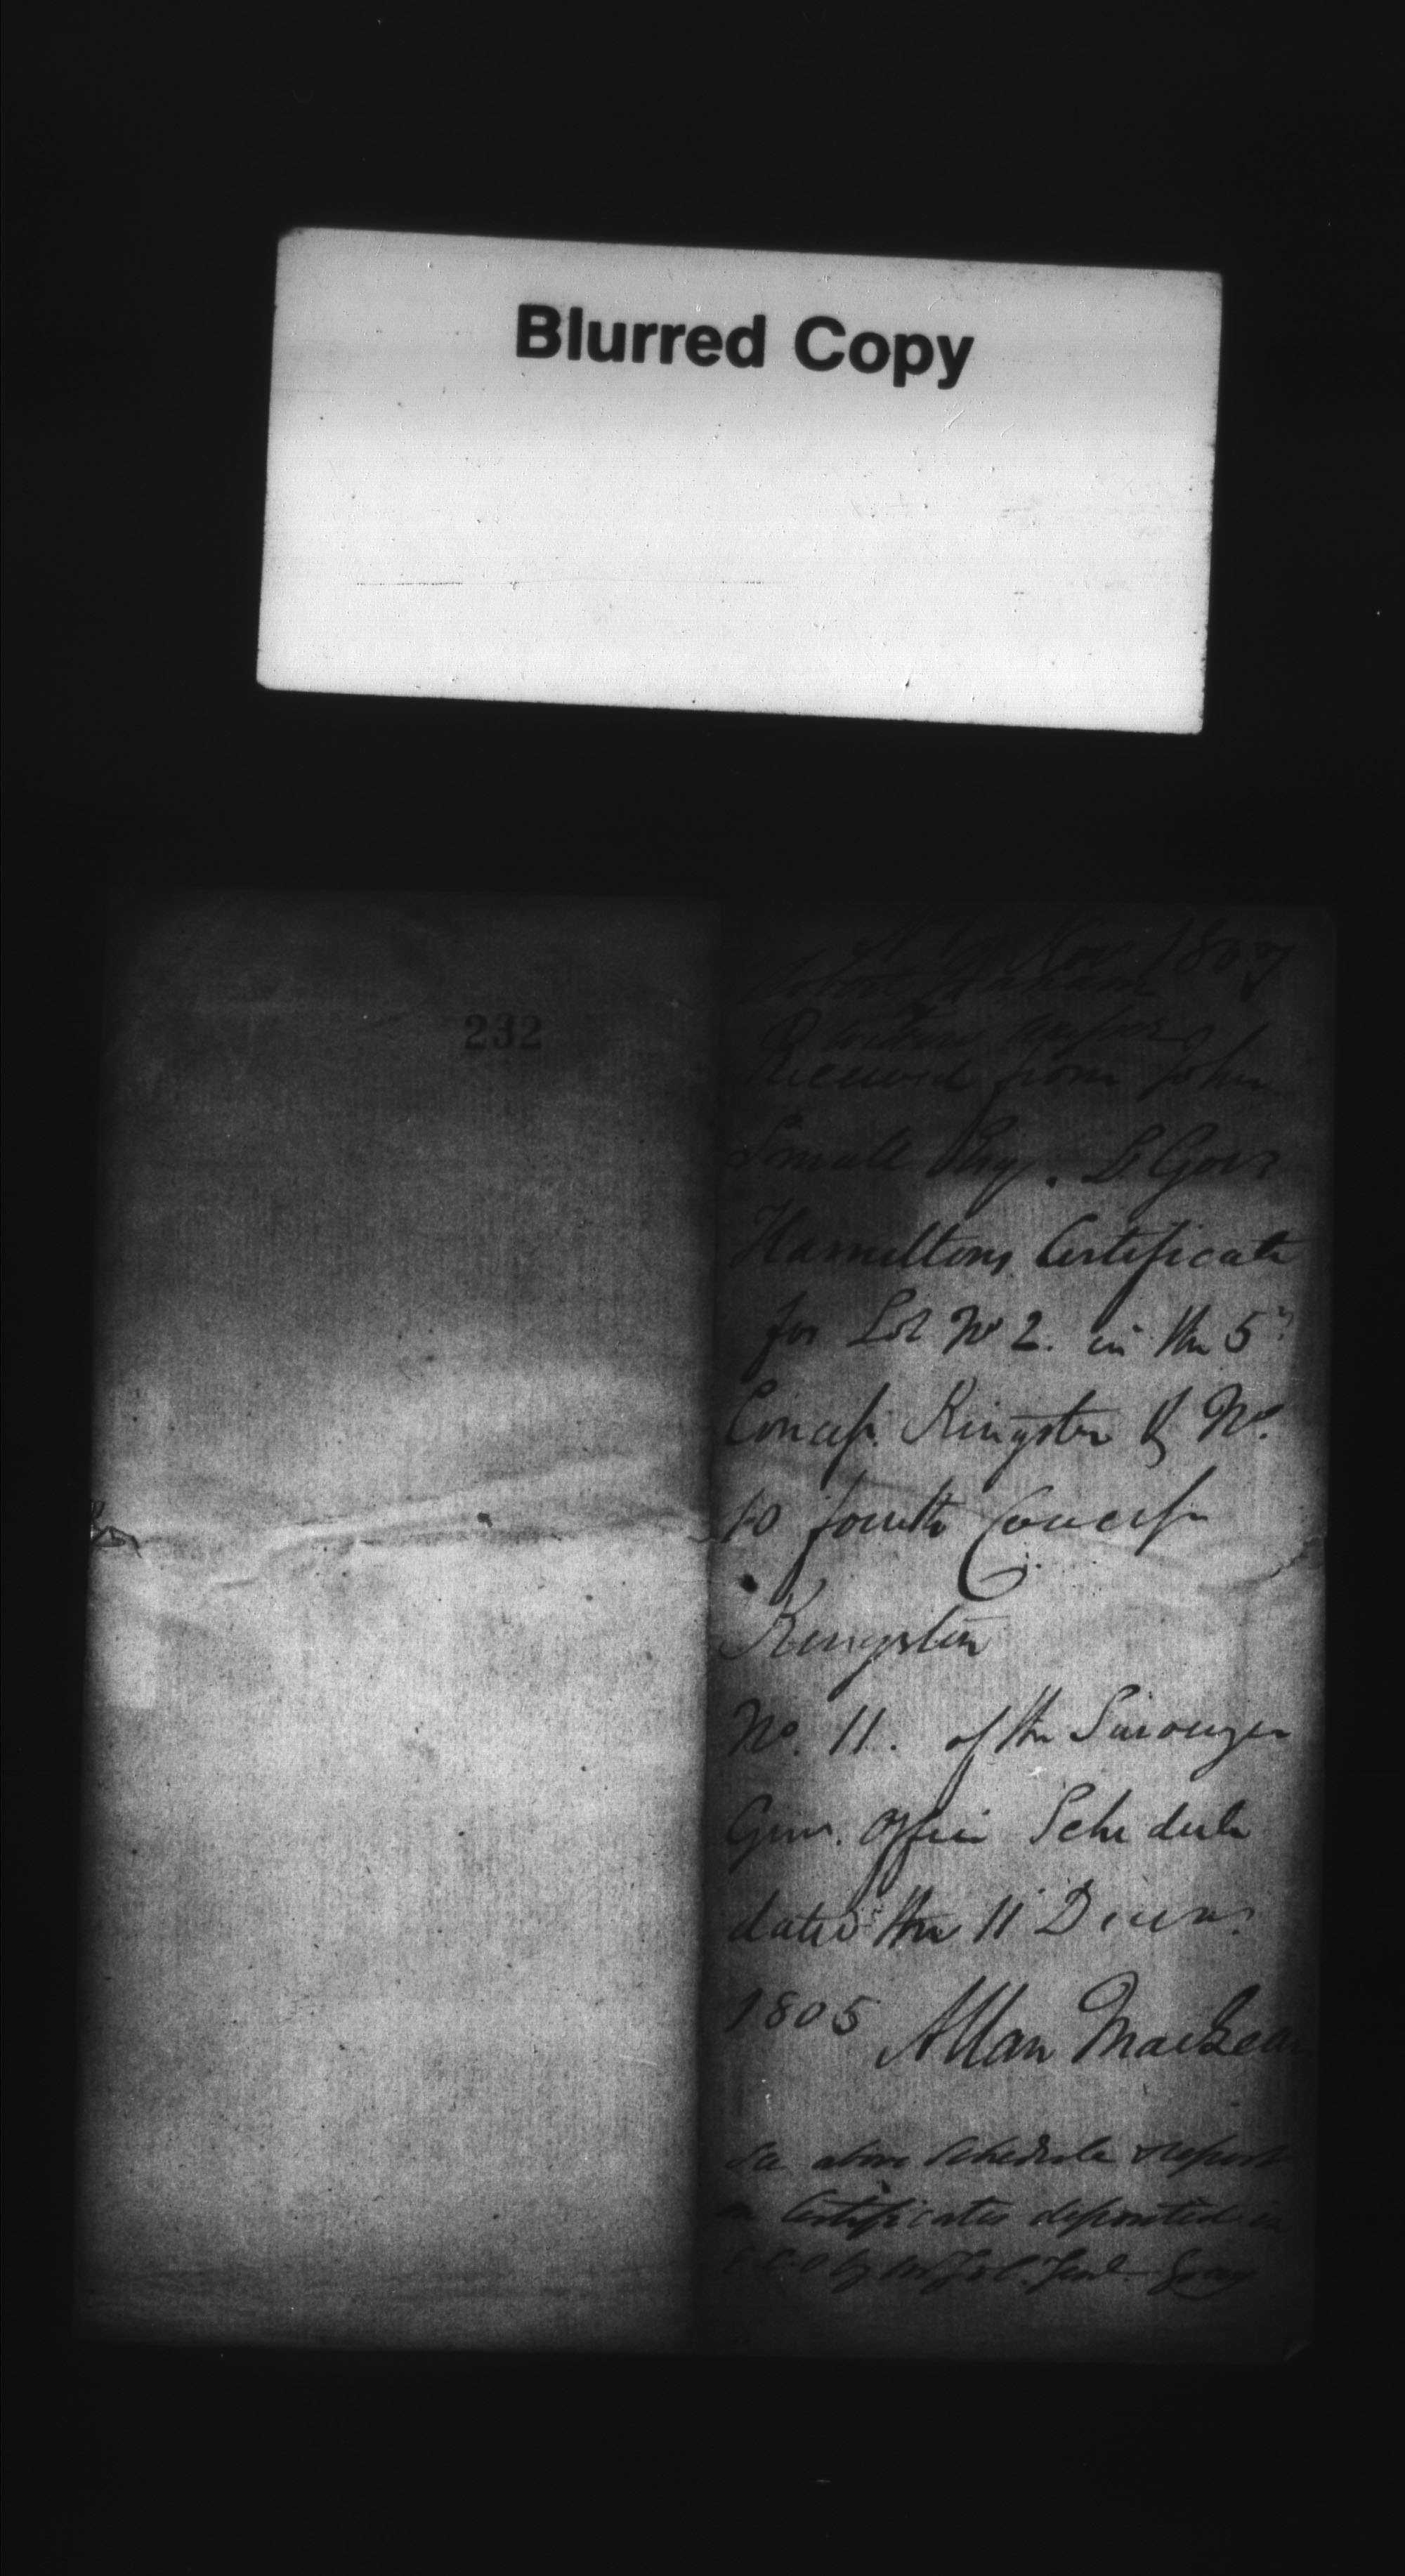 Blurred Copy
232
1807
Received from John
Small Esq. Lt Govr
Hamiltons Certificate
for Lot No 2. in the 5th
Concess. Kingston & No.
10 fourth Concess
Kingston
No. 11. of the Surveyor
Genr. Office Schedule
dated the 11 Decem
1805 Allan MacLean
above Schedule
Certificates deposited in
by Gray